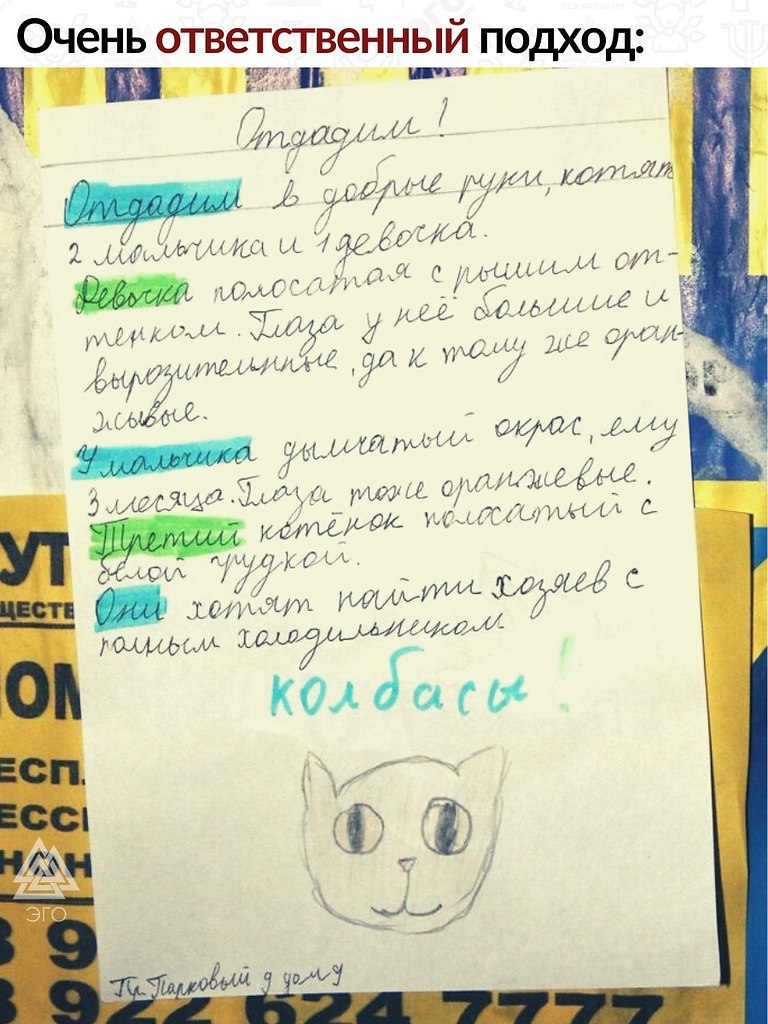 Очень ответственный подход:
Отдадим!
Отдадим в добрые руки, котят
2 мальчика и 1 девочка.
Девочка полосатая с рышим от-
тенком. Глаза у неё большие и
вырозительнные, да к тому же оран-
жывые.
У мальчика дымчатый окрас, ему
3 месяца. Глаза тоже оранжевые.
Третий котёнок полосатый с
белой грудкой.
Они хотят найти хозяев с
полным холодильником
колбасы!
УТ
ЩЕСТВ
ЮМ
ЕСП
ЕССИ
ЭГО
Пр. Парковый д дом 9
8 922 624 7777